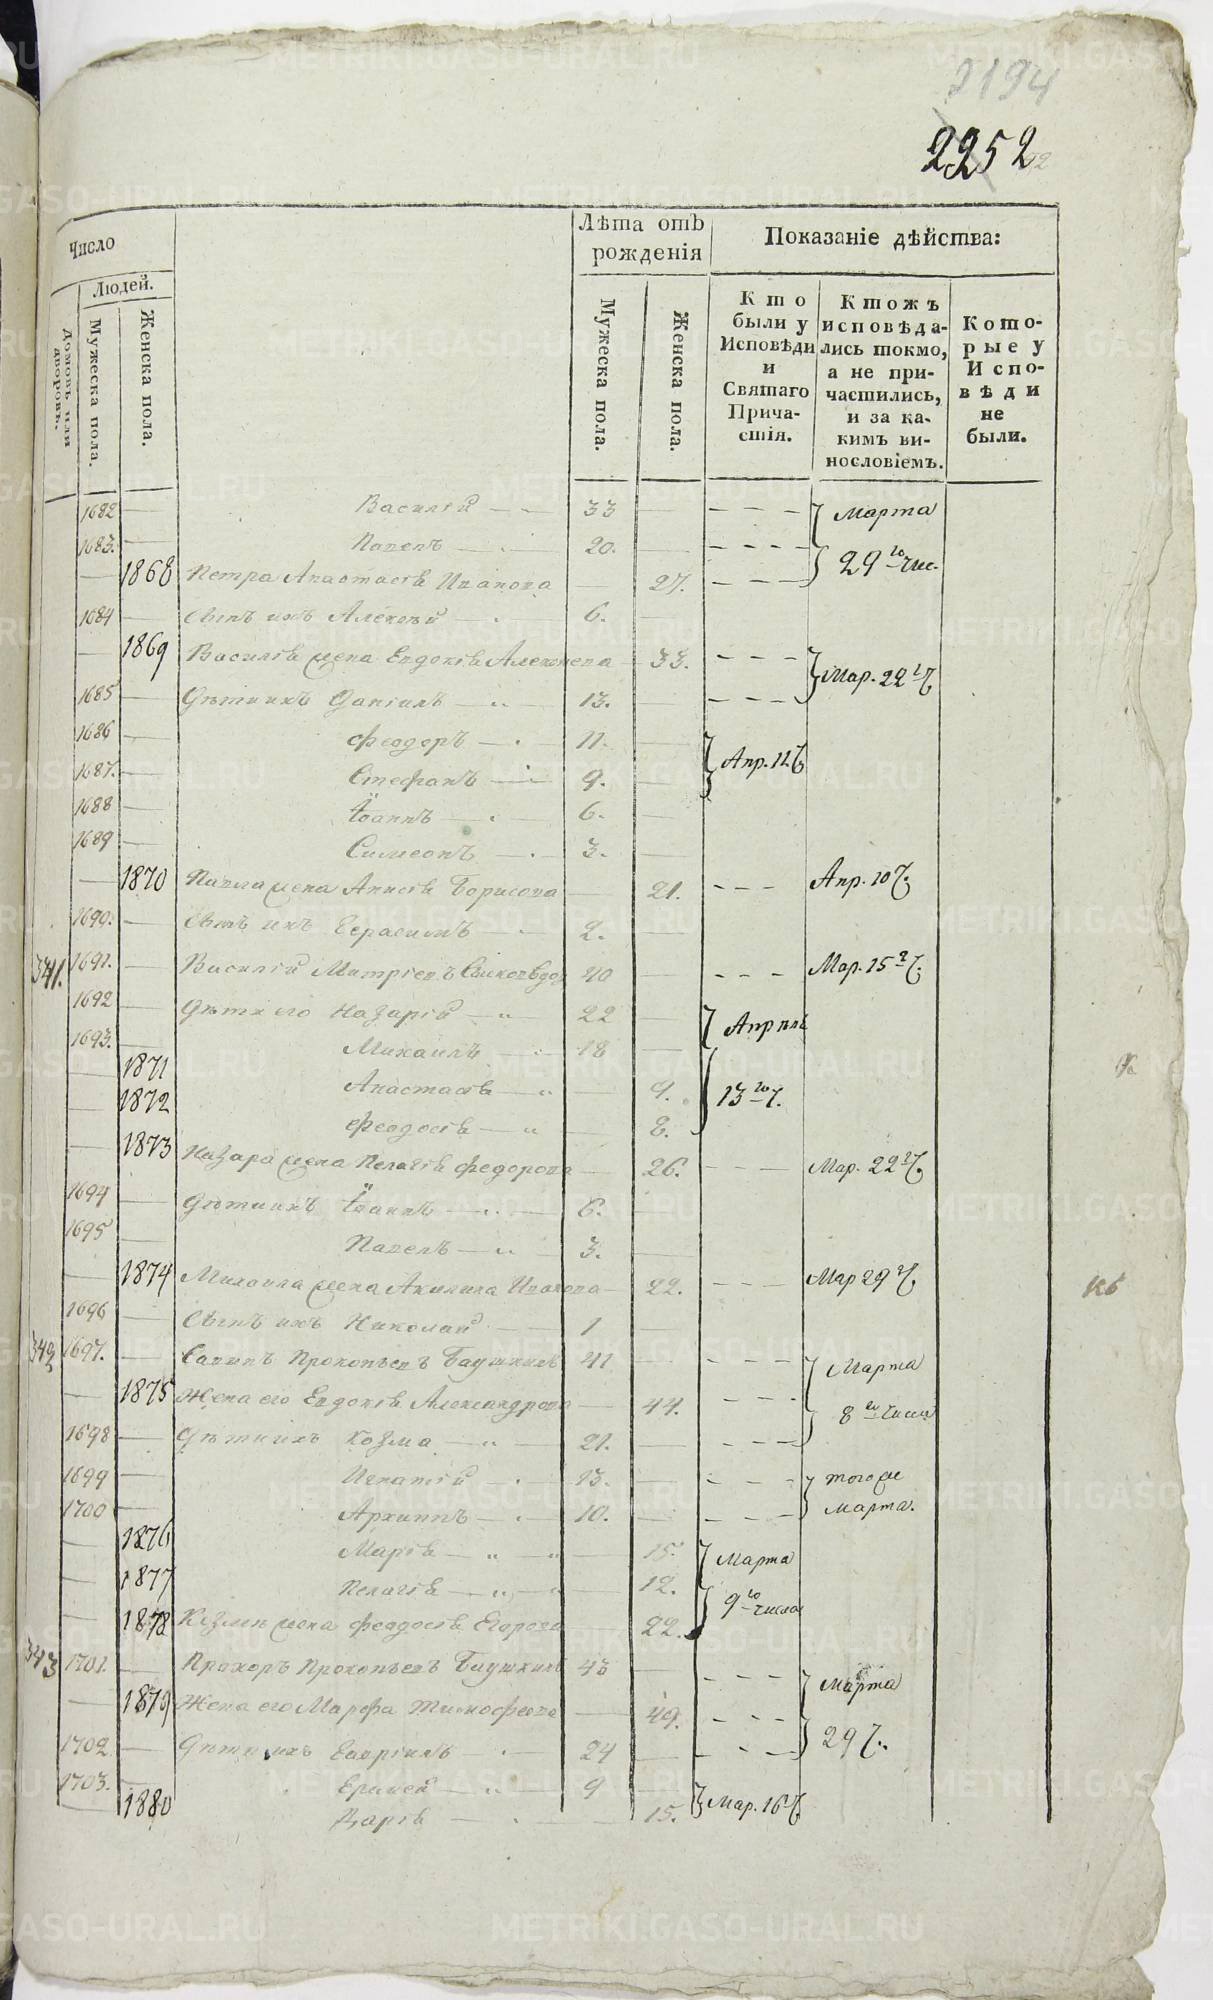 2194
2252
Число
Людей.
Домовъ или дворовъ.
Мужеска пола.
Женска пола.
Лѣта отъ рожденія
Мужеска пола.
Женска пола.
Показаніе дѣйства:
Кто были у Исповѣди и Святаго Причастія.
Ктожъ исповѣдались токмо, а не причастились, и за какимъ винословіемъ.
Которые у Исповѣди не были.
1682 — Василій — — 33 — Марта
1683. — Павелъ — 20. — 29 го чис.
— 1868 Петра Анастасія Иванова — 27.
1684 — Сынъ ихъ Алексѣй — 6. —
— 1869 Василія жена Евдокія — 33. Мар. 22 ч
1685 — Дѣти ихъ Даніилъ — 13. —
1686 — Феодоръ — 11. — Апр. 12 ч
1687. — Стефанъ — 9. —
1688 — Іоаннъ — 6. —
1689 — Симеонъ — 3. —
— 1870 Павла жена Анисія Борисова — 21. Апр. 10 ч.
1690. — Сынъ ихъ Герасимъ — 2. —
341. 1691. — Василій 40 — Мар. 15 ч.
1692 — Дѣти его Назарій — 22 — Апрѣля
1693. — Михаилъ — 18 —
— 1871 Анастасія — 9. 13 го ч.
— 1872 Феодосія — 8.
— 1873 Назара жена Пелагія Федорова — 26. Мар. 22 ч.
1694 — Дѣти ихъ Іоаннъ — 6. —
1695 — Павелъ — 3. —
— 1874 Михаила жена Акилина Иванова — 22. Мар 29 ч.
1696 — Сынъ ихъ Николай — 1 —
342 1697. — Саввинъ Прокопьевъ Баушкинъ 41 — Марта
— 1875 Жена его Евдокія Александрова — 44. 8 го числа
1698 — Дѣти ихъ Козма — 21. —
1699 — Игнатій — 13. — тогоже
1700 — Архиппъ — 10. — Марта.
— 1876 Марія — 15. Марта
— 1877 Пелагія — 12. 9 го числа
— 1878 Козмы жена Феодосія Егорова — 22.
343 1701. — Прохоръ Прокопьевъ Баушкинъ 43 — Марта
— 1879 Жена его Марфа Тимофеева — 49. 29 ч.
1702. — Дѣти ихъ Гавріилъ — 24 —
1703. — Ермей — 9 — Мар. 16 ч.
— 1880 Дарія — 15.